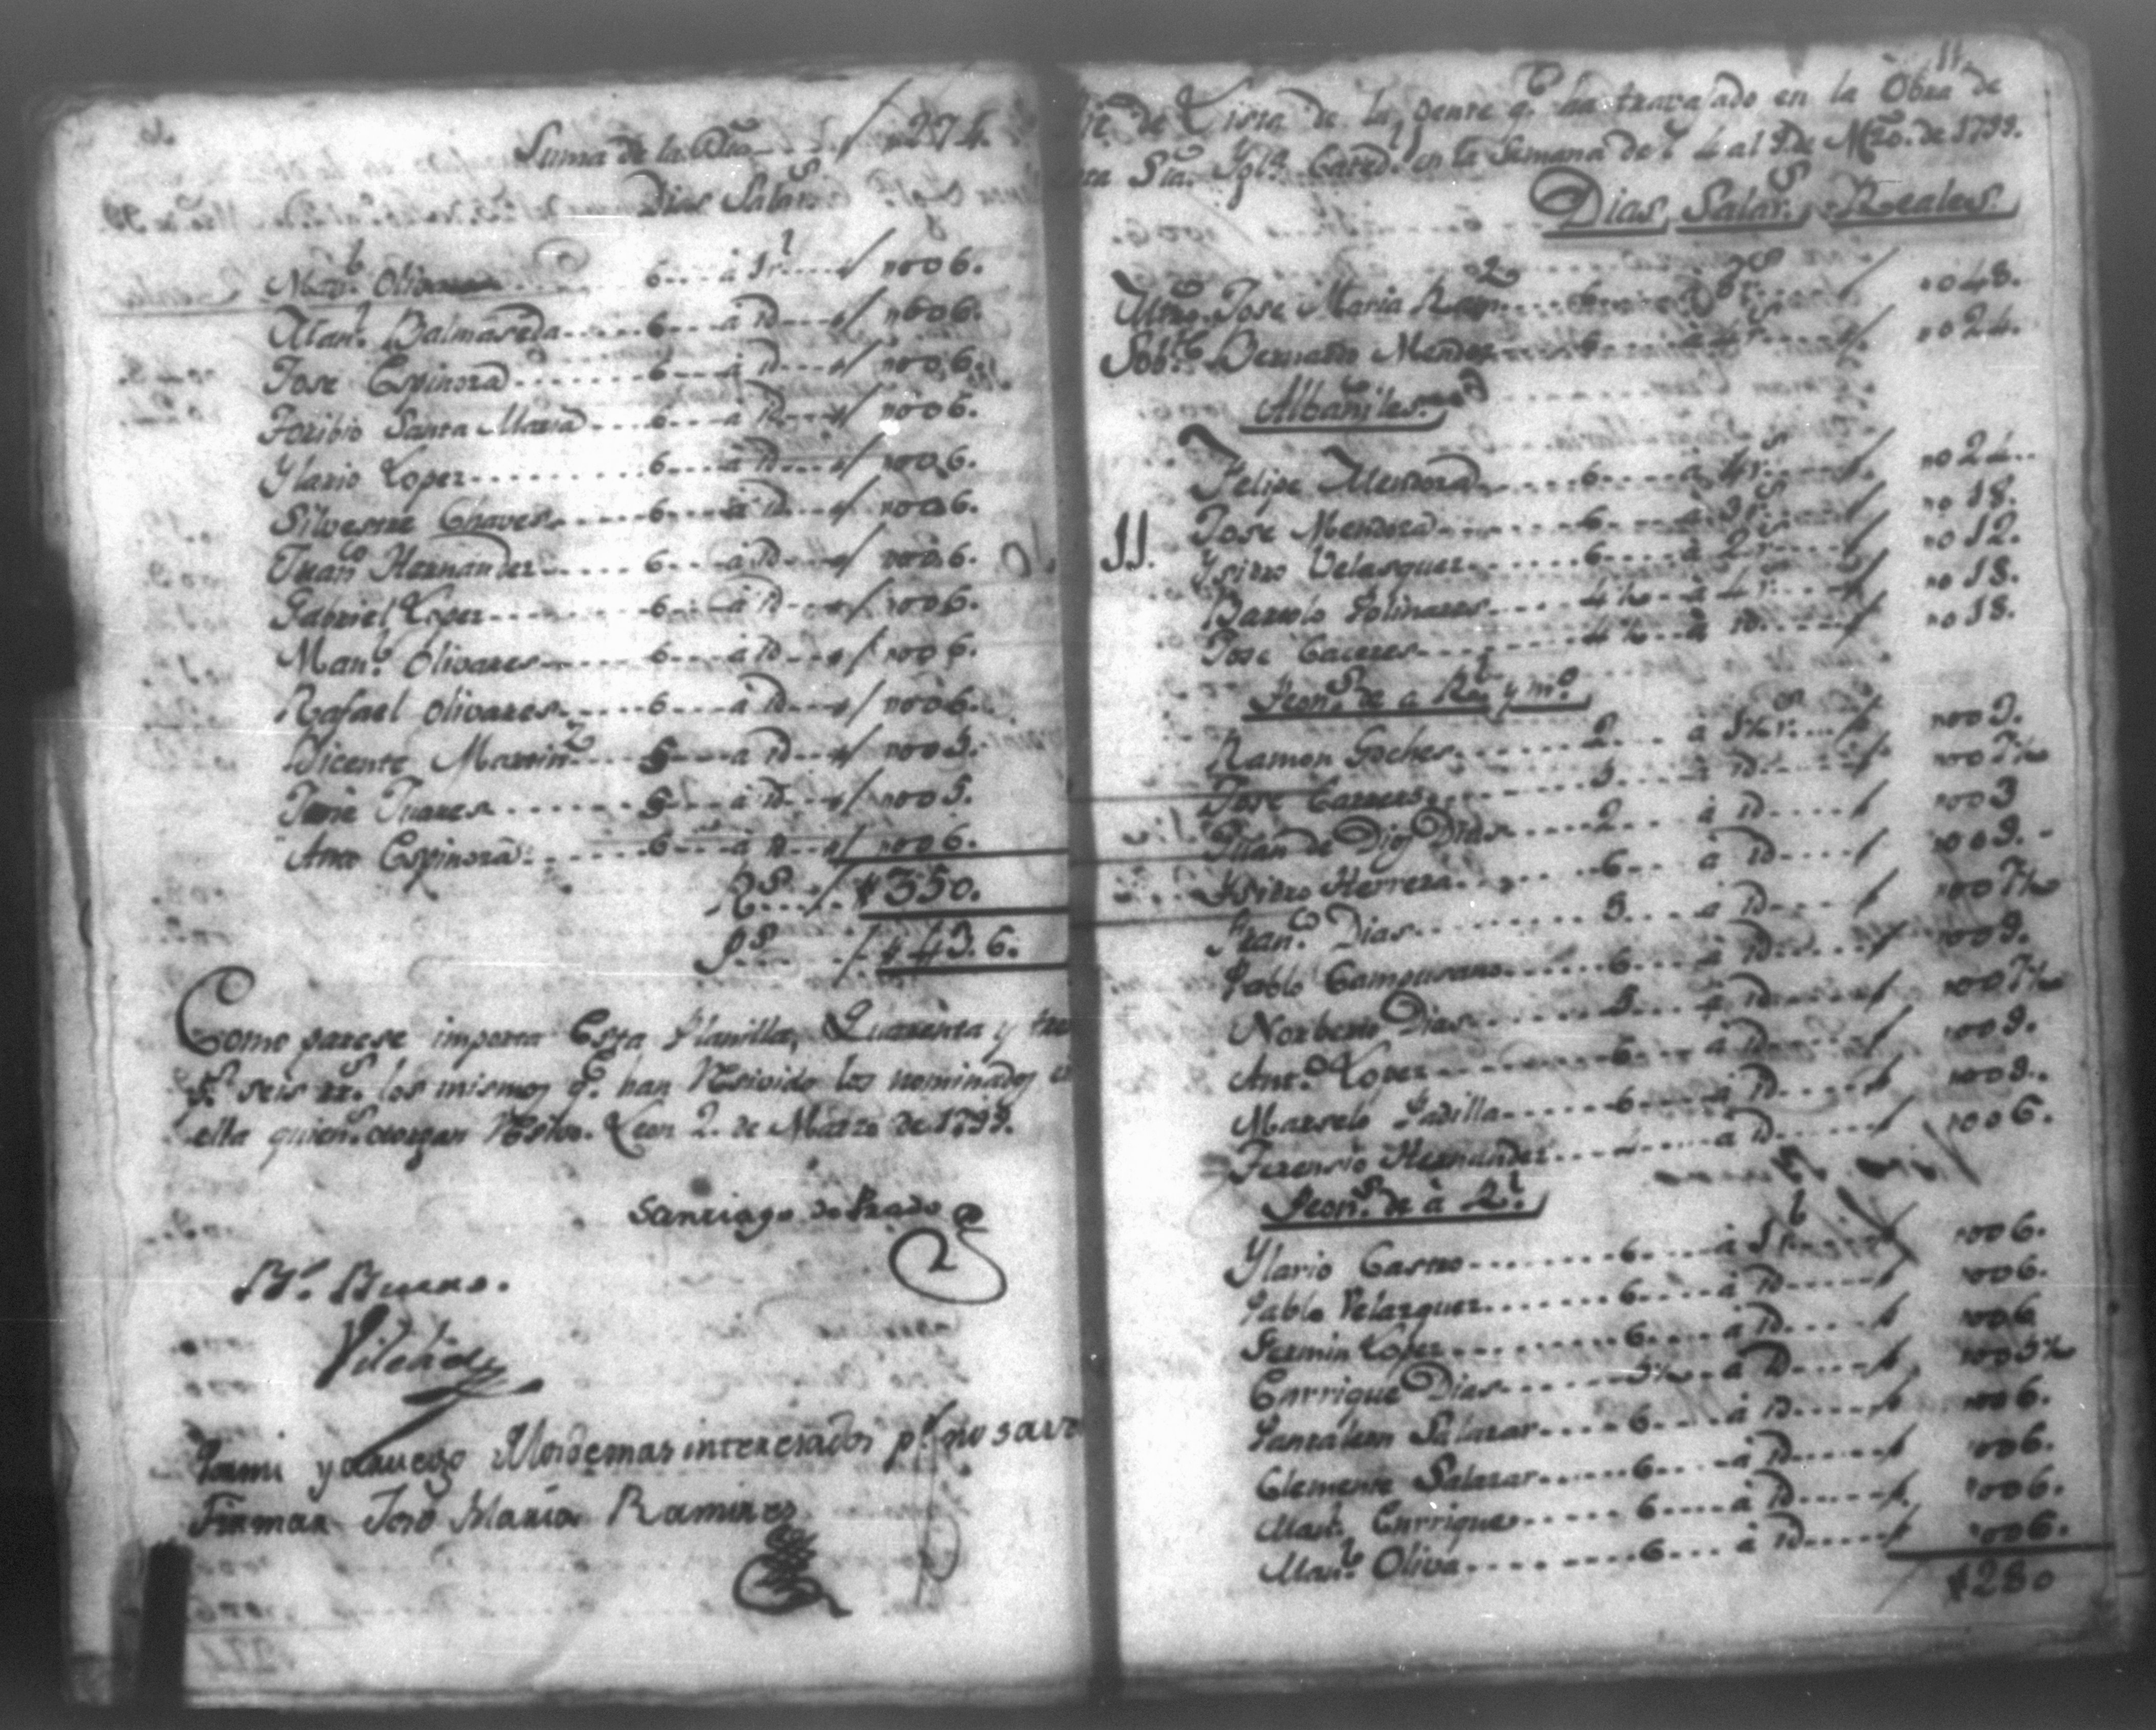 Suma de la Bta..../ "274.
Dias Salars
Man.l Olivares.... 6....à 1 r.l..../ "006.
Man.l Balmaseda.... 6....à id..../ "006.
Jose Espinoza.... 6....à id..../ "006.
Toribio Santa Maria.... 6....à id..../ "006.
Ylario Lopez.... 6....à id..../ "006.
Silvestre Chaves.... 6....à id..../ "006.
Juan Hernandez.... 6....à id..../ "006.
Gabriel Lopez.... 6....à id..../ "006.
Man.l Olivares.... 6....à id..../ "006.
Rafael Olivares.... 6....à id..../ "006.
Vicente Martinz.... 5....à id..../ "005.
Juares.... 5....à id..../ "005.
Anto Espinoza.... 6....à id..../ "006.
R.s..../ "350.
P.s..../ "43.6.
Como parese importa Esta Planilla, Quarenta y tres
p.s seis rr.s los mismos q.e han Resivido los nominados en
ella quien.s otorgan Resivo. Leon 2. de Marzo de 1799.
Santiago de Prado
V.o Bueno.
Vilches
Por mi y a ruego de los demas interesados p.r no saver
Firmar Jose Maria Ramires
11.
de Lista de la Gente q.e ha travajado en la Obra de
Sta. Ygla. Cated.l en la Semana de 4 al 9 de Mzo. de 1799.
Dias, Salar.s, Reales.
Mro. Jose Maria Ramz.... 6....à 8 r.s..../ "048.
Sob.te Bernardo Mendoza.... 6....à 4 r.s..../ "024.
Albañiles.
Felipe Mendoza.... 6....à 4 r.s..../ "024.
11. Jose Mendoza.... 6....à 3 r.s..../ "018.
Ysidro Velasquez.... 6....à 2 r.s..../ "012.
Bartolo Polinares.... 4½....à 4 r.s..../ "018.
Jose Caceres.... 4½....à id..../ "018.
Peon.s de a R.l y m.o
Ramon Goches.... 2....à 1½ r.s..../ "003.
Jose Carrers.... 5....à id..../ "007½
Juan de Dios Dias.... 2....à id..../ "003
Ysidro Herrera.... 6....à id..../ "009.
Fran.co Dias.... 5....à id..../ "007½
Pablo Campusano.... 6....à id..../ "009.
Norberto Dias.... 5....à id..../ "007½
Ant.o Lopez.... 6....à id..../ "009.
Marselo Padilla.... 6....à id..../ "009.
Terensio Hernandez.... 4....à id..../ "006.
Peon.s de à R.l
Ylario Castro.... 6....à 1 r.l..../ "006.
Pablo Velazquez.... 6....à id..../ "006.
Fermin Lopez.... 6....à id..../ "006
Enrrique Dias.... 5½....à id..../ "005½
Pantaleon Salazar.... 6....à id..../ "006.
Clemente Salazar.... 6....à id..../ "006.
Man.l Enrriques.... 6....à id..../ "006.
Man.l Oliva.... 6....à id..../ "006.
"280